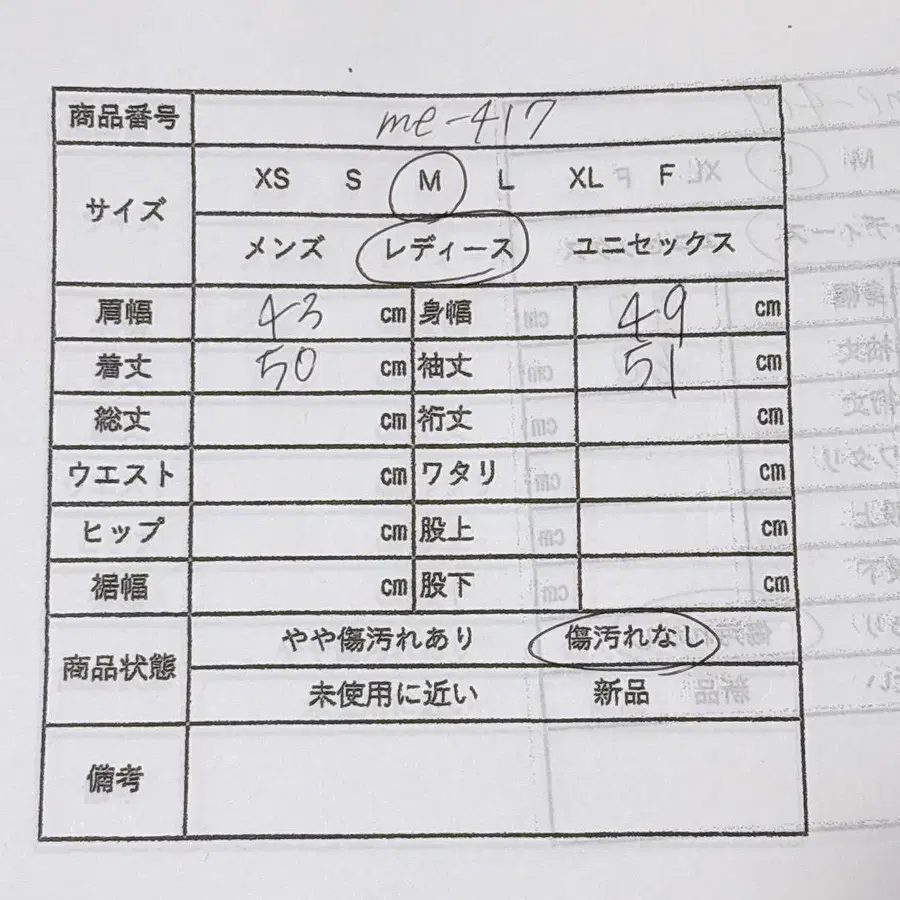 商品番号 me-417
サイズ XS S M L XL F
メンズ レディース ユニセックス
肩幅 43 cm 身幅 49 cm
着丈 50 cm 袖丈 51 cm
総丈 cm 裄丈 cm
ウエスト cm ワタリ cm
ヒップ cm 股上 cm
裾幅 cm 股下 cm
商品状態 やや傷汚れあり 傷汚れなし
未使用に近い 新品
備考